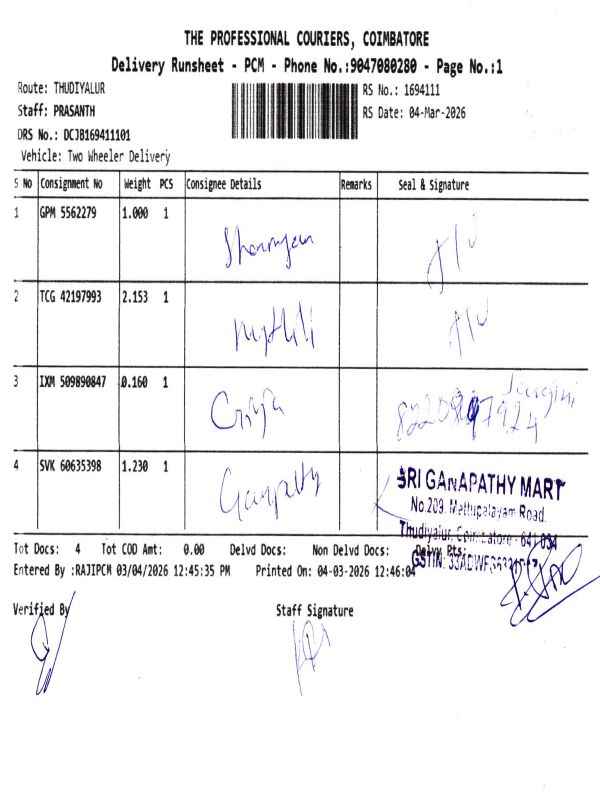 THE PROFESSIONAL COURIERS, COIMBATORE
Delivery Runsheet - PCM - Phone No.:9047080280 - Page No.:1
Route: THUDIYALUR RS No.: 1694111
Staff: PRASANTH RS Date: 04-Mar-2026
DRS No.: DCJB169411101
Vehicle: Two Wheeler Delivery
S No Consignment No Weight PCS Consignee Details Remarks Seal & Signature
1 GPM 5562279 1.000 1
2 TCG 42197993 2.153 1
Mythili
3 IXM 509890847 0.160 1
4 SVK 60635398 1.230 1
Ganpathy
SRI GANAPATHY MART
No.209, Mettupalayam Road,
Thudiyalur, Coimbatore - 641 034
GSTIN:
Tot Docs: 4 Tot COD Amt: 0.00 Delvd Docs: Non Delvd Docs: Delvy Pts:
Entered By :RAJIPCM 03/04/2026 12:45:35 PM Printed On: 04-03-2026 12:46:04
Verified By Staff Signature